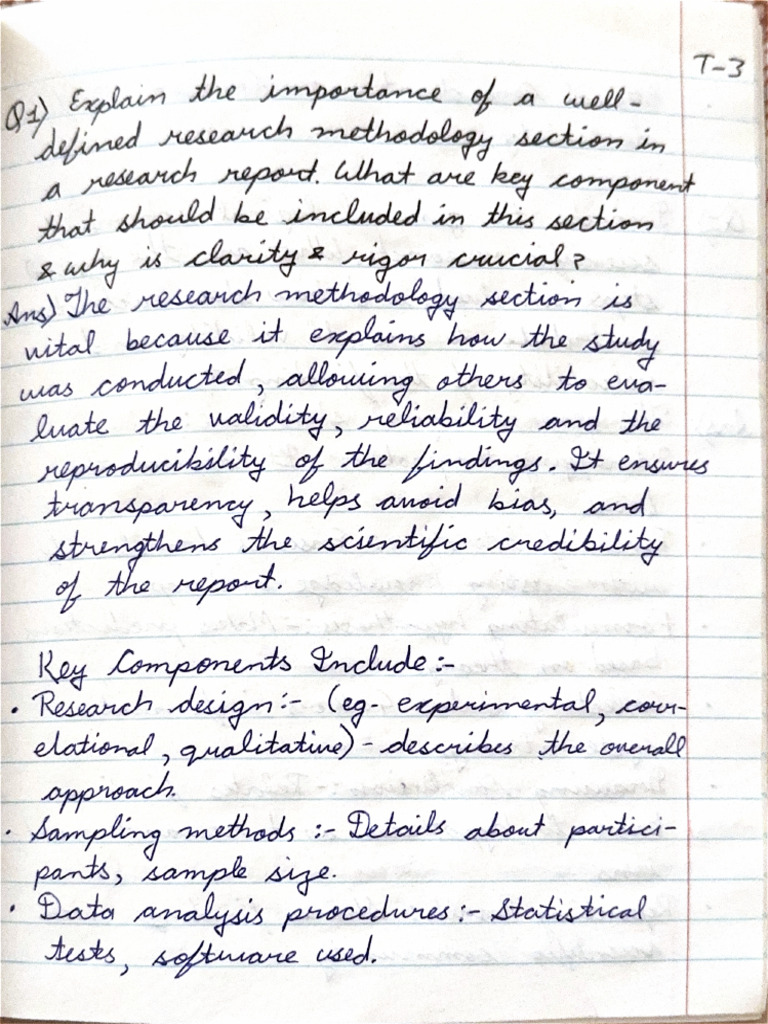 T-3
Q1) Explain the importance of a well-
defined research methodology section in
a research report. What are key component
that should be included in this section
& why is clarity & rigor crucial?
Ans) The research methodology section is
vital because it explains how the study
was conducted, allowing others to eva-
luate the validity, reliability and the
reproducibility of the findings. It ensures
transparency, helps avoid bias, and
strengthens the scientific credibility
of the report.
Key Components Include :-
• Research design :- (eg. experimental, corr-
elational, qualitative) - describes the overall
approach.
• Sampling methods :- Details about partici-
pants, sample size.
• Data analysis procedures :- Statistical
tests, software used.